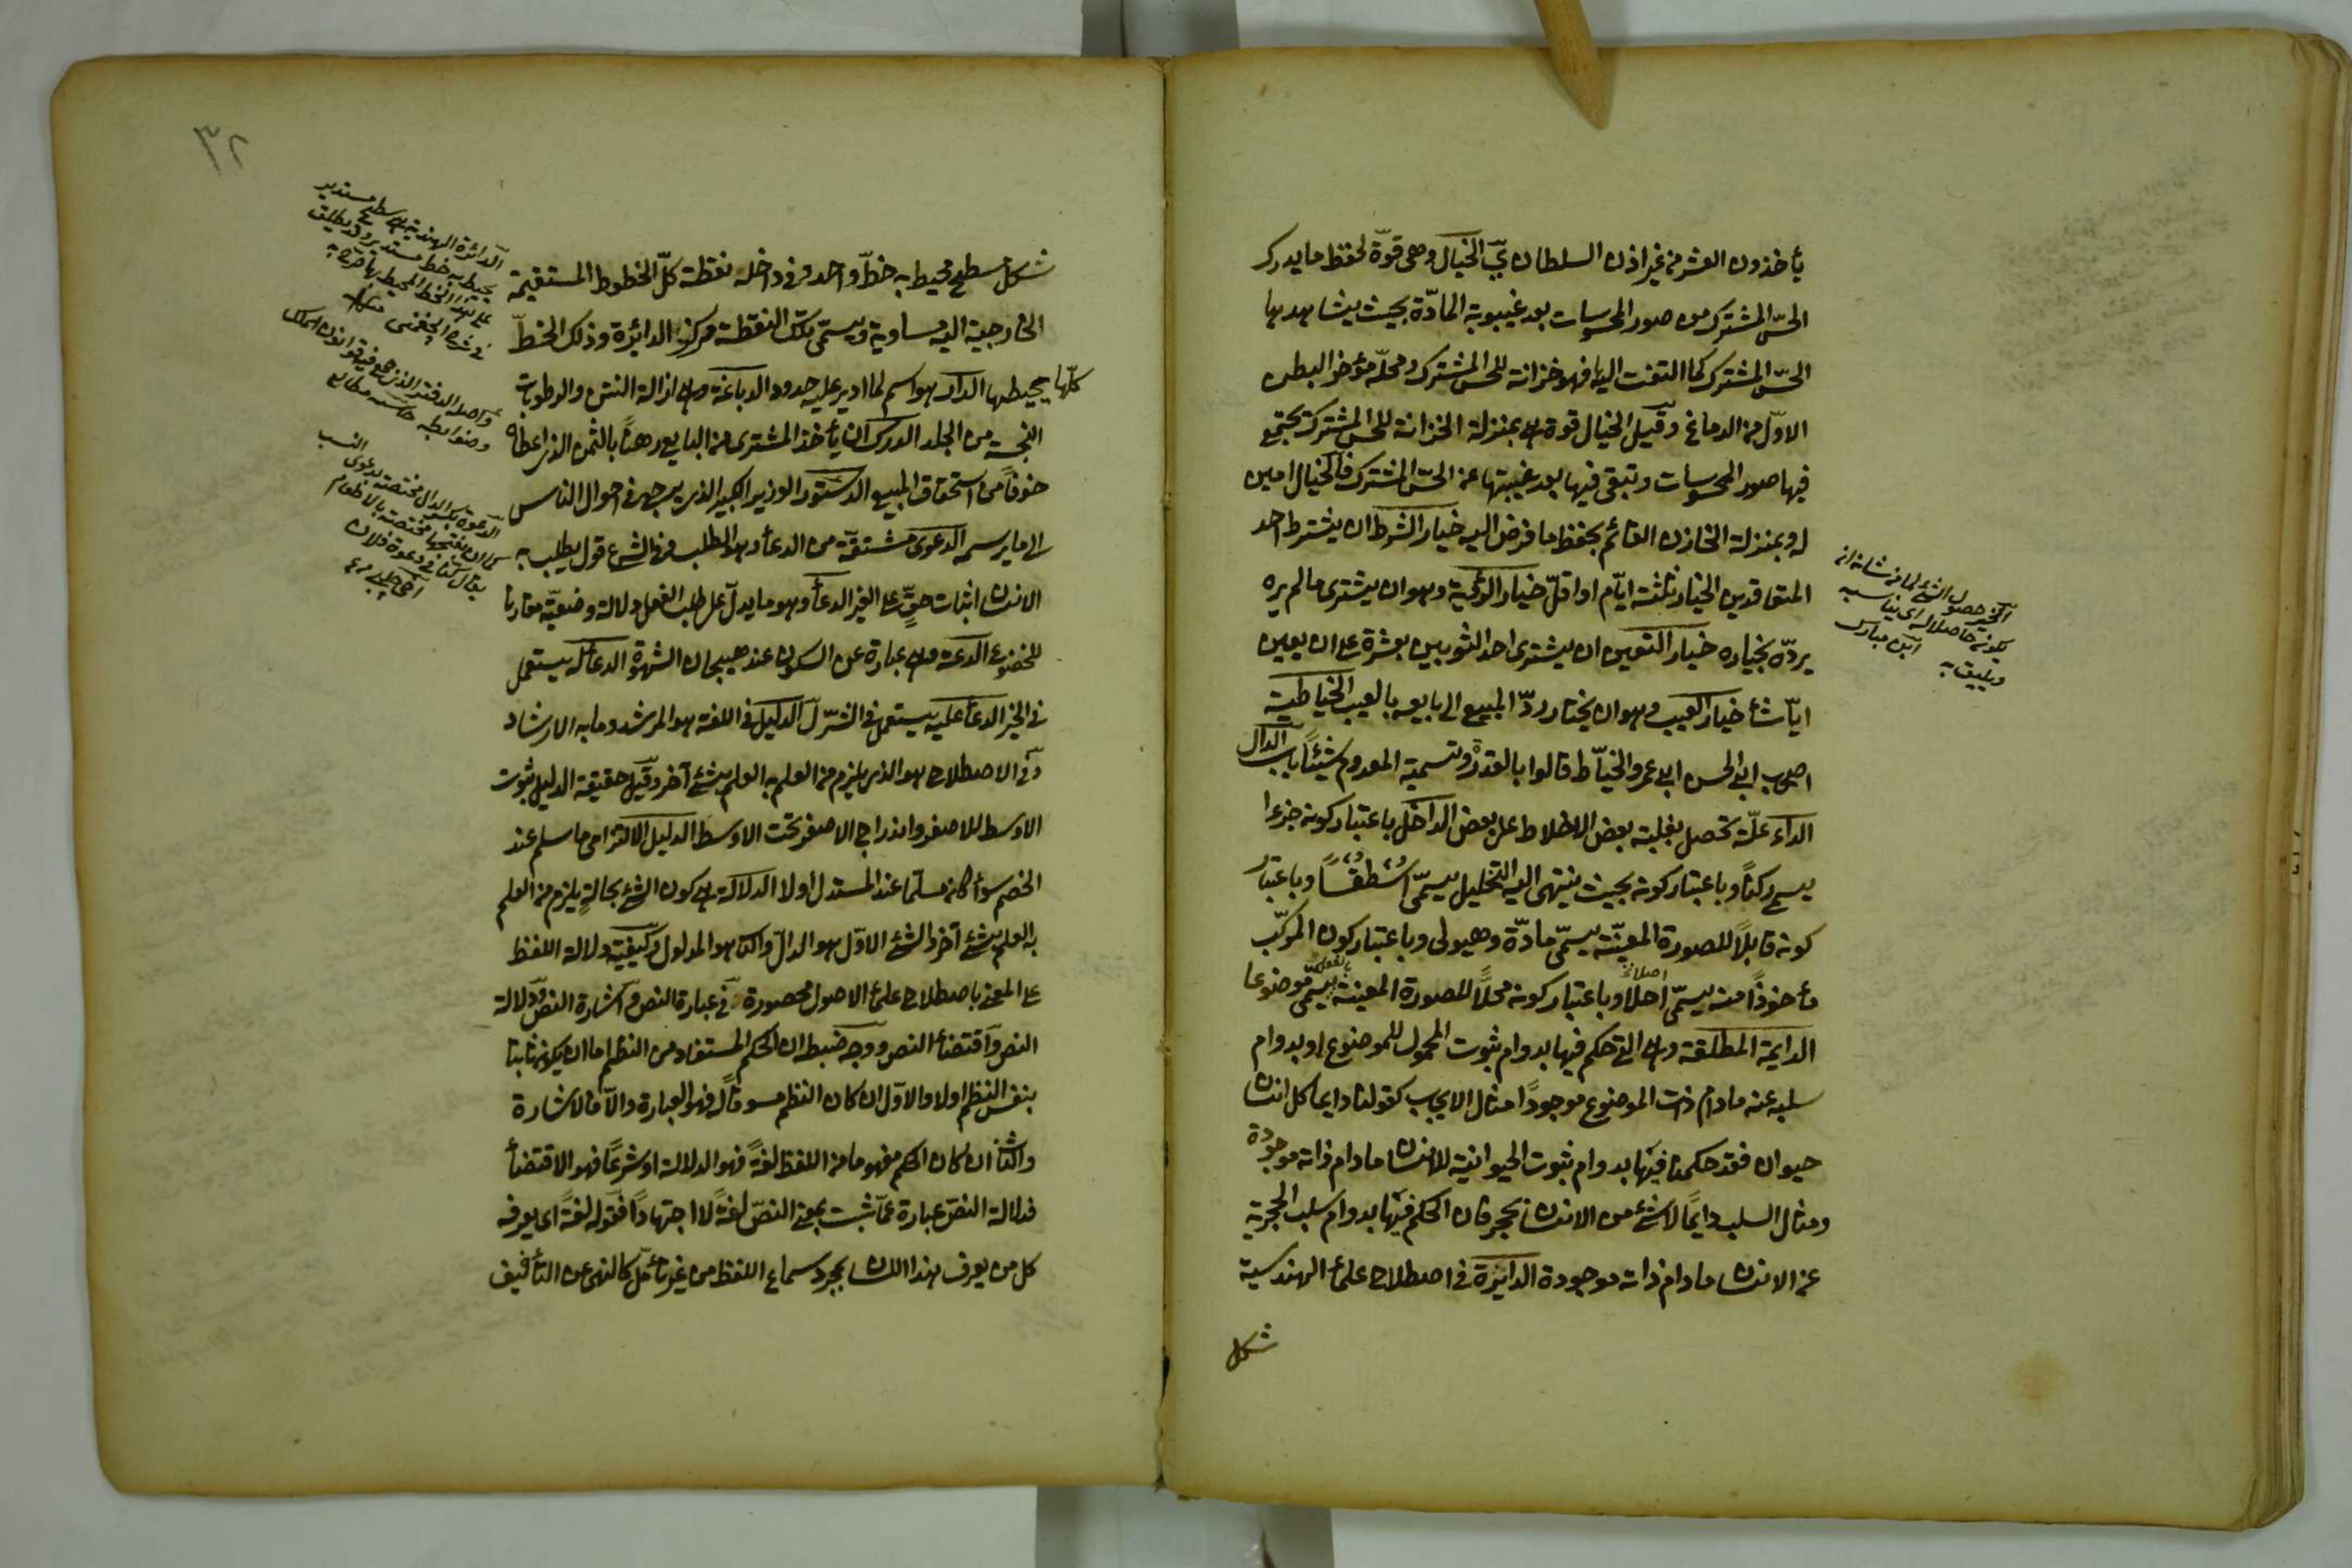 يأخذون العشر من غير اذن السلطان الخيال وهى قوّة تحفظ ما يدركه
الحسّ المشترك من صور المحسوسات بعد غيبوبة المادّة بحيث يشاهدها
الحسّ المشترك كلما التفت اليها فهو خزانة للحس المشترك ومحلّه مؤخر البطن
الاوّل من الدماغ وقيل الخيال قوة هى بمنزلة الخزانة للحس المشترك تجتمع
فيها صور المحسوسات وتبقى فيها بعد غيبتها عن الحسّ المشترك فالخيال امين
له وبمنزلة الخازن القائم بحفظ ما فرض اليه خيار الشرط ان يشترط احد
المتعاقدين الخيار ثلثة ايّام او اقلّ خيار الرؤية وهو ان يشترى ما لم يره
يردّه بخياره خيار التعيين ان يشترى احد الثوبين بعشرة على ان يعين
ايّا شأ خيار العيب وهو ان يختار ردّ المبيع الى بايعه بالعيب الخياطية
اصحاب ابى الحسن ابى عمرو الخيّاط قالوا بالقدر وتسمية المعدوم شيئًا باب الدال
الداء علّة تحصل بغلبة بعض الاخلاط على بعض الداخل باعتبار كونه جزءا
يسمى ركنًا وباعتبار كونه بحيث ينتهى اليه التحليل يسمّى اسْطُقُسًا وباعتبار
كونه قابلًا للصورة المعيّنة يسمّى مادّة وهيولى وباعتبار كون المركّب
مأخوذًا منه يسمّى اصلا وباعتبار كونه محلًّا للصورة المعينة بالفعل يسمّى موضوعا
الدايمة المطلقة وهى التى حكم فيها بدوام ثبوت المحمول للموضوع او بدوام
سلبه عنه مادام ذات الموضوع موجودًا مثال الايجاب كقولنا دايما كل انسان
حيوان فقد حكمنا فيها بدوام ثبوت الحيوانية للانسان مادام ذاته موجودة
ومثال السلب دايمًا لا شئ من الانسان بحجر فان الحكم فيها بدوام سلب الحجرية
عن الانسان مادام ذاته موجودة الدايرة فى اصطلاح علمأ الهندسية
شكل
حصول الشئ لما من شانه ان
يكون حاصلا له اى يناسبه
ويليق به ابن مبارك
٣٢
شكل مسطح محيط به خطّ واحد وفى داخله نقطة كلّ الخطوط المستقيمة
الخارجية اليه مساوية ويسمّى تلك النقطة مركز الدائرة وذلك الخطّ
كلّها محيطها الدار هو اسم لما ادير عليه حدود الدباغة وهى ازالة النتن والرطوبات
النجسة من الجلد الدرك ان يأخذ المشترى من البايع رهنًا بالثمن الذى اعطاه
خوفًا من استحقاق المبيع الدستور الوزير الكبير الذى يرجع فى احوال الناس
الى ما يرسمه الدعوى مشتقّة من الدعأ وهو الطلب وفى الشرع قول يطلب به
الانسان اثبات حقّ على الغير الدعأ وهو ما يدلّ على طلب الفعل دلالة وضعيّة مقارنا
للخضوع الدعة وهى عبارة عن السكون عند هيجان الشهوة الدعأ له يستعمل
فى الخير الدعأ عليه يستعمل فى الشرّ الدليل فى اللغة هو المرشد وما به الارشاد
وفى الاصطلاح هو الذى يلزم من العلم به العلم بشئ آخر وقيل حقيقة الدليل ثبوت
الاوسط للاصغر واندراج الاصغر تحت الاوسط الدليل الالتزامى ما سلم عند
الخصم سوأ كان مسلّما عند المستدل او لا الدلالة هى كون الشئ بحالةٍ يلزم من العلم
به العلم بشئ آخر والشئ الاوّل هو الدالّ والثانى هو المدلول وكيفيّة دلالة اللفظ
على المعنى باصطلاح علمأ الاصول محصورة فى عبارة النص واشارة النص ودلالة
النص واقتضأ النص ووجه ضبطه ان الحكم المستفاد من النظم اما ان يكون ثابتا
بنفس النظم او لا والاوّل ان كان النظم مسوقًا له فهو العبارة والّا فالاشارة
والثانى ان كان الحكم مفهوما من اللفظ لغةً فهو الدلالة او شرعًا فهو الاقتضأ
فدلالة النصّ عبارة عمّا ثبت بمعنى النصّ لغةً لا اجتهادًا فقوله لغةً اى يعرفه
كل من يعرف هذا اللسان بمجرد سماع اللفظ من غير تأمّل كالنهى عن التأفيف
الدائرة الهندية هى سطح مستدير
يحيط به خط مستدير وقد يطلق
على هذا الخط المحيط بها صرّح به
فى شرح الجغمنى
واصله الدفتر الذى جمع فيه قوانين الملك
وضوابطه
الدعوة بكسر الدال مختصة بدعوى النسب
كما ان بفتحها مختصة بالاطعام
يقال كنا فى دعوة فلان
اخى چلبى